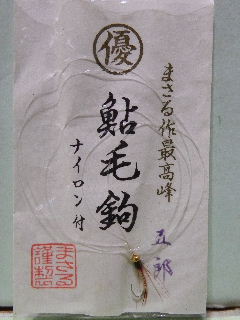 優
まさる作最高峰
鮎毛鉤
ナイロン付
五郎
まさる
謹製